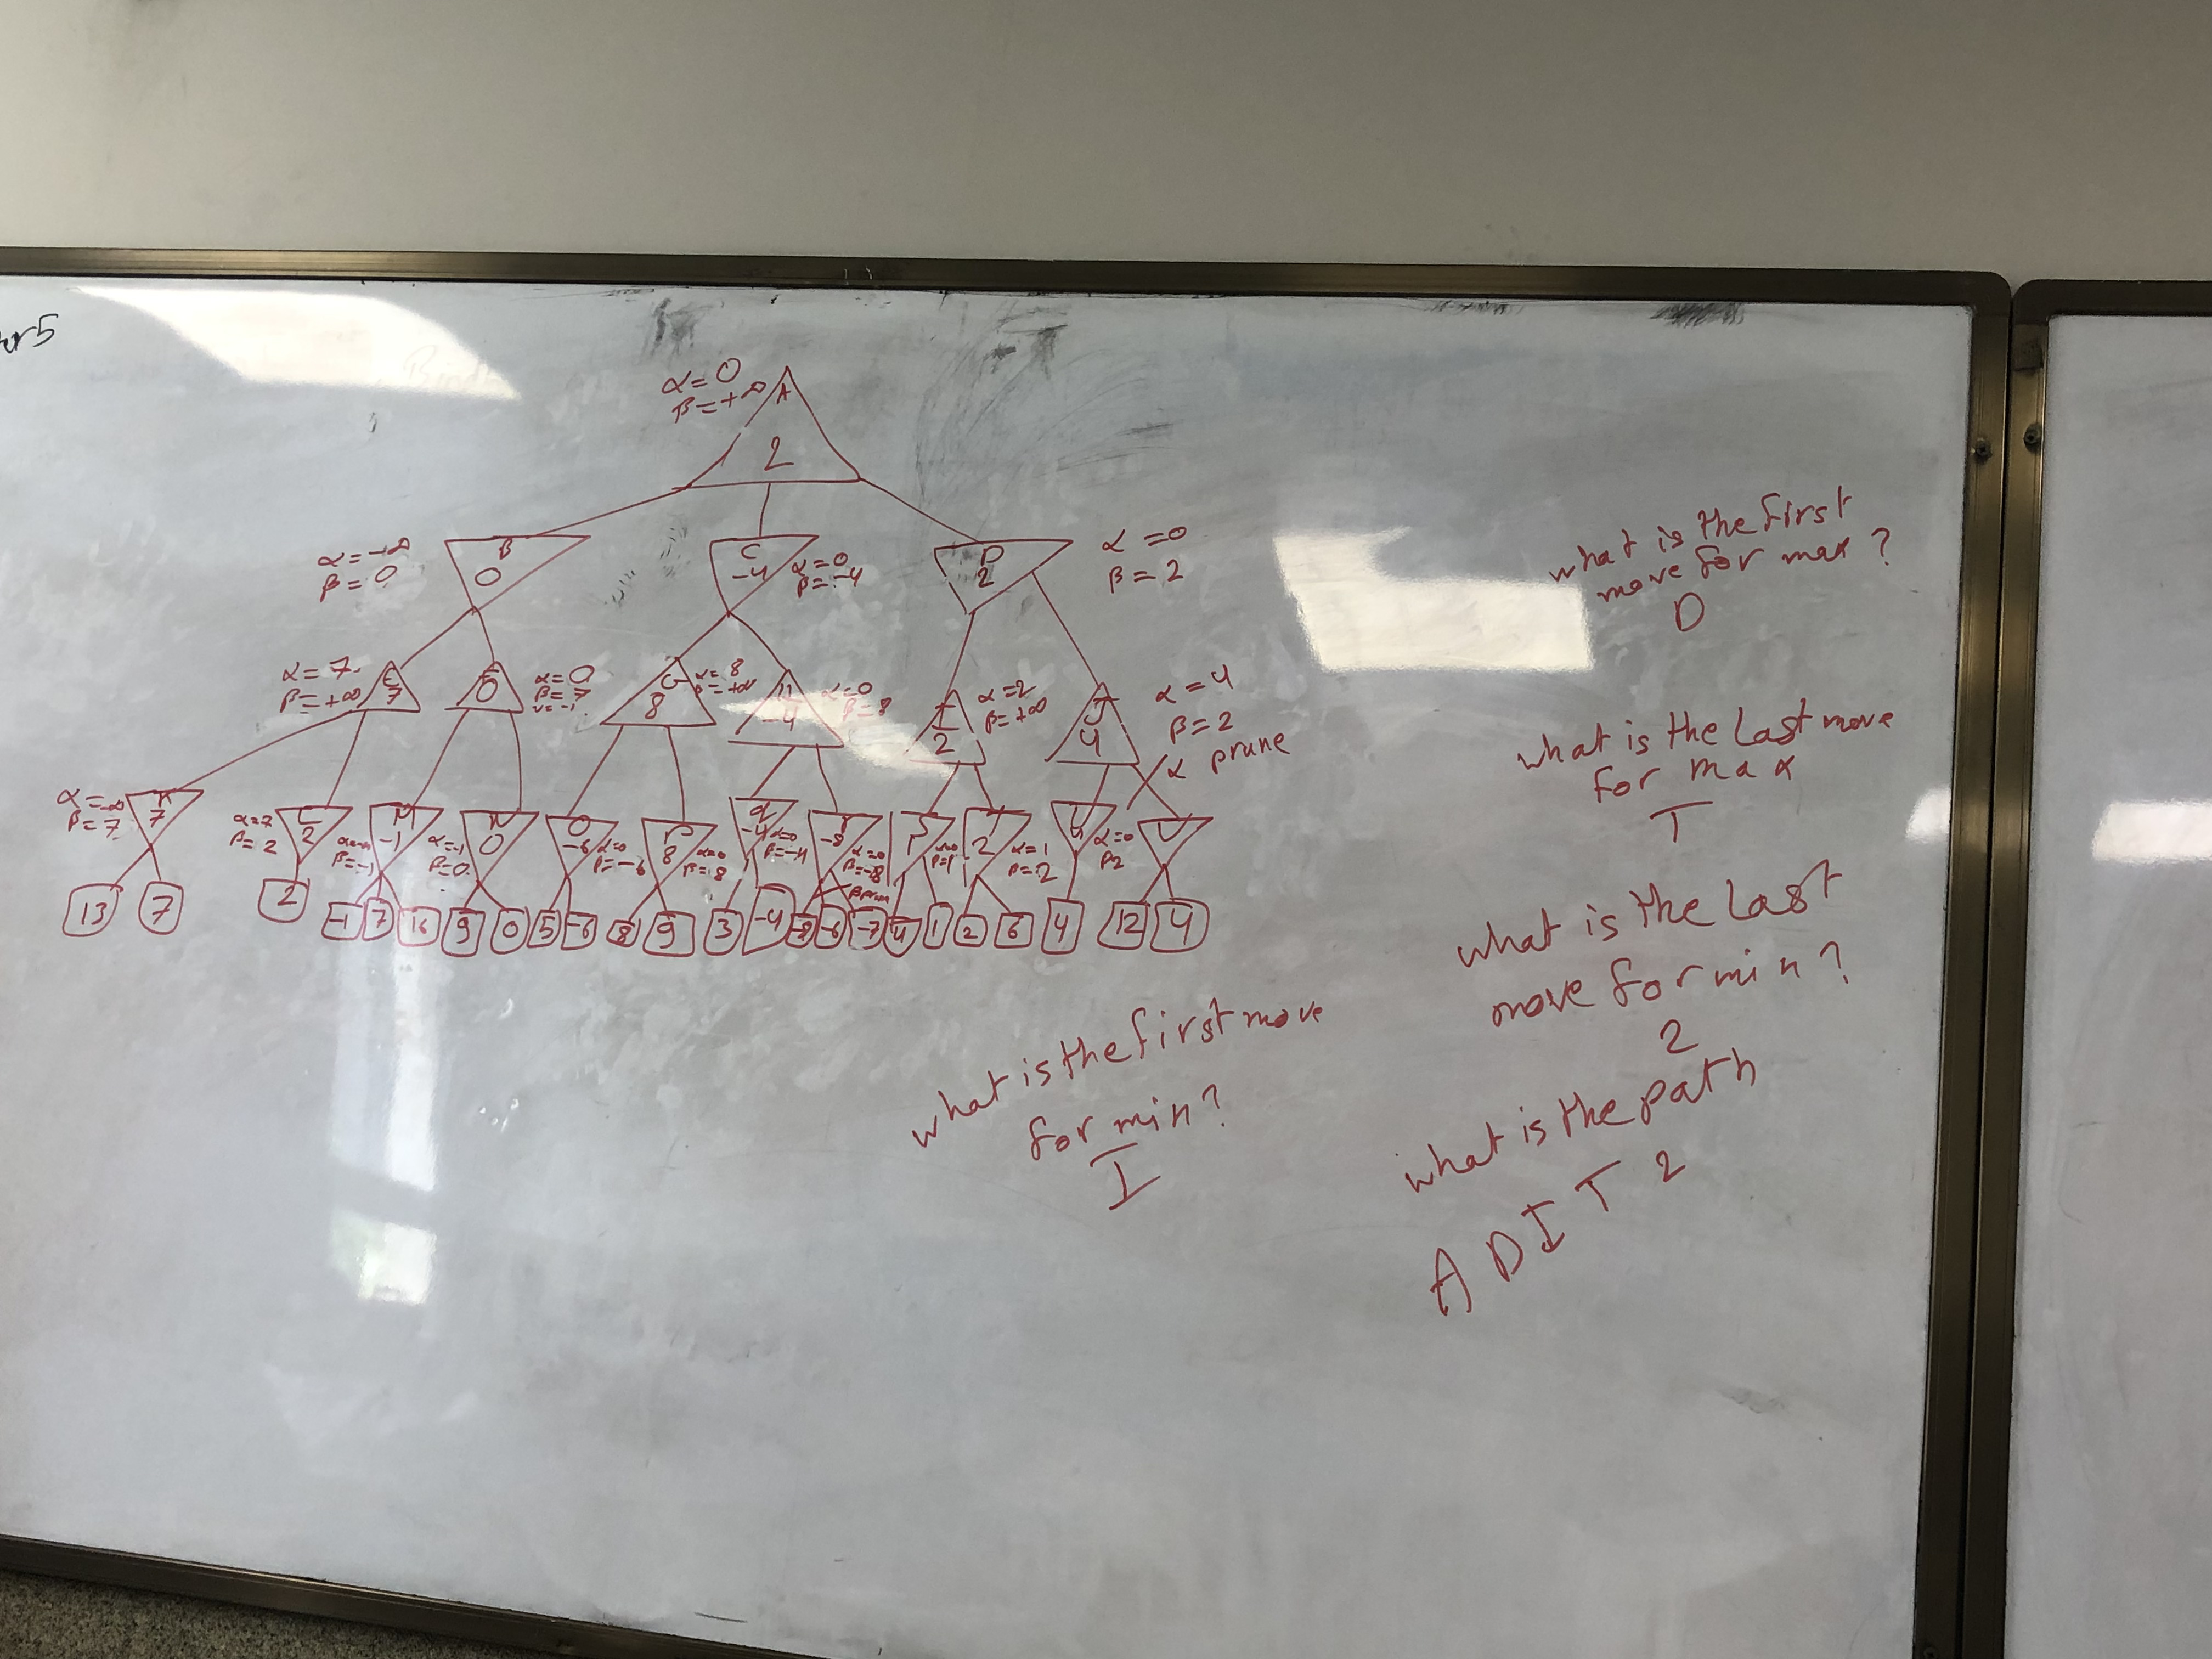 α=0
β=+∞
A
2
α=-∞
β=0
B
0
C
-4
α=0
β=-4
D
2
α=0
β=2
α=7
β=+∞
7
0
α=0
β=7
v=-1
G
8
α=8
β=+∞
H
-4
α=0
β=8
I
2
α=2
β=+∞
J
4
α=4
β=2
α prune
α=-∞
β=7
K
7
α=7
β=2
L
2
β=-1
M
-1
α=-1
β=0
N
0
O
-6
α=0
β=-6
P
8
α=0
β=8
q
-4
α=0
β=-4
r
-8
α=0
β=-8
β prun
1
β=1
T
2
α=1
β=2
4
α=0
β2
13 7 2 -1 7 16 9 0 5 -6 8 9 3 -4 -8 -6 -7 4 1 2 6 4 12 4
what is the first
move for max?
D
what is the last move
for max
T
what is the last
move for min?
2
what is the path
A D I T 2
what is the first move
for min?
I